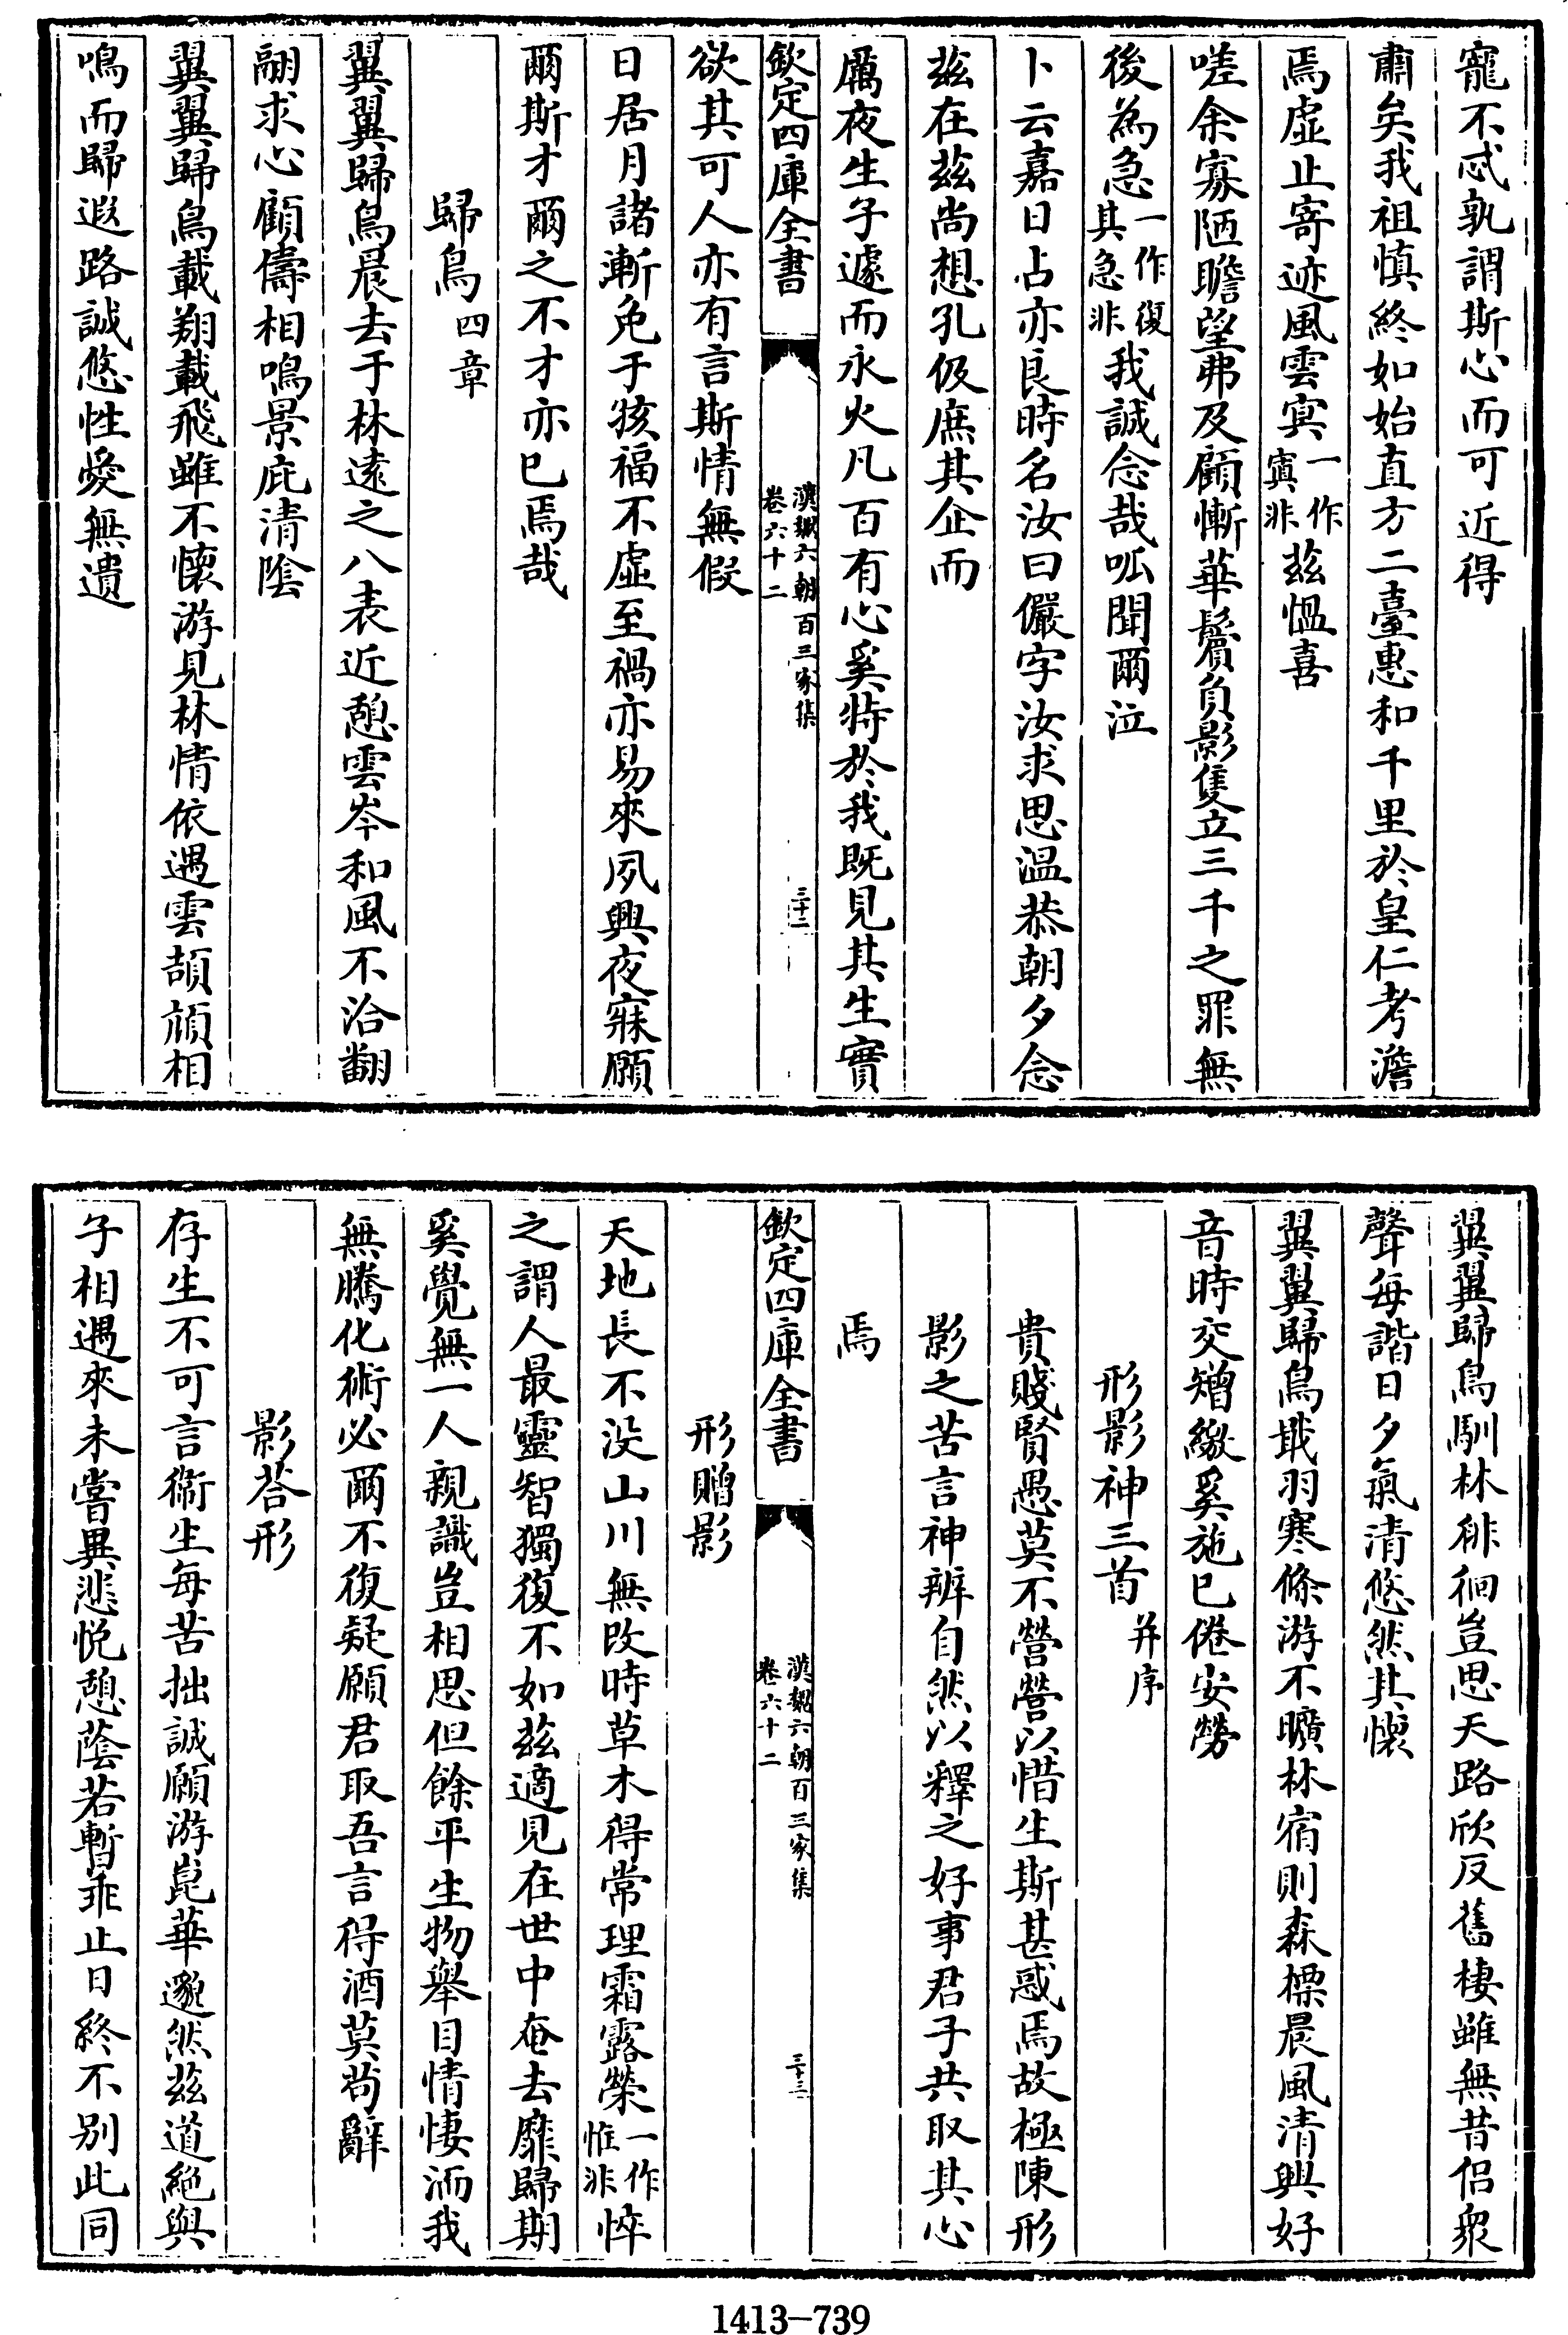 寵不忒孰謂斯心而可近得
肅矣我祖慎終如始直方二臺惠和千里於皇仁考澹
焉虛止寄迹風雲㝠一作寘非茲愠喜
嗟余寡陋瞻望弗及顧慚華鬢負影隻立三千之罪無
後為急一作復其急非我誠念哉呱聞爾泣
卜云嘉日占亦良時名汝曰儼字汝求思温恭朝夕念
茲在茲尚想孔伋庶其企而
厲夜生子遽而求火凡百有心奚特於我既見其生實
欽定四庫全書
漢魏六朝百三家集
卷六十二
三十二
欲其可人亦有言斯情無假
日居月諸漸免于孩福不虛至禍亦易來夙興夜寐願
爾斯才爾之不才亦已焉哉
歸鳥四章
翼翼歸鳥晨去于林遠之八表近憩雲岑和風不洽翻
翮求心顧儔相鳴景庇清陰
翼翼歸鳥載翔載飛雖不懷游見林情依遇雲頡頏相
鳴而歸遐路誠悠性愛無遺
翼翼歸鳥馴林徘徊豈思天路欣反舊棲雖無昔侣衆
聲每諧日夕氣清悠然其懷
翼翼歸鳥戢羽寒條游不曠林宿則森標晨風清興好
音時交矰繳奚施已倦安勞
形影神三首并序
貴賤賢愚莫不營營以惜生斯甚惑焉故極陳形
影之苦言神辨自然以釋之好事君子共取其心
焉
欽定四庫全書
漢魏六朝百三家集
卷六十二
三十三
形贈影
天地長不没山川無改時草木得常理霜露榮一作惟非悴
之謂人最靈智獨復不如茲適見在世中奄去靡歸期
奚覺無一人親識豈相思但餘平生物舉目情悽洏我
無騰化術必爾不復疑願君取吾言得酒莫茍辭
影荅形
存生不可言衞生每苦拙誠願游崑華邈然茲道絶與
子相遇來未嘗異悲悦憩蔭若暫乖止日終不别此同
1413—739